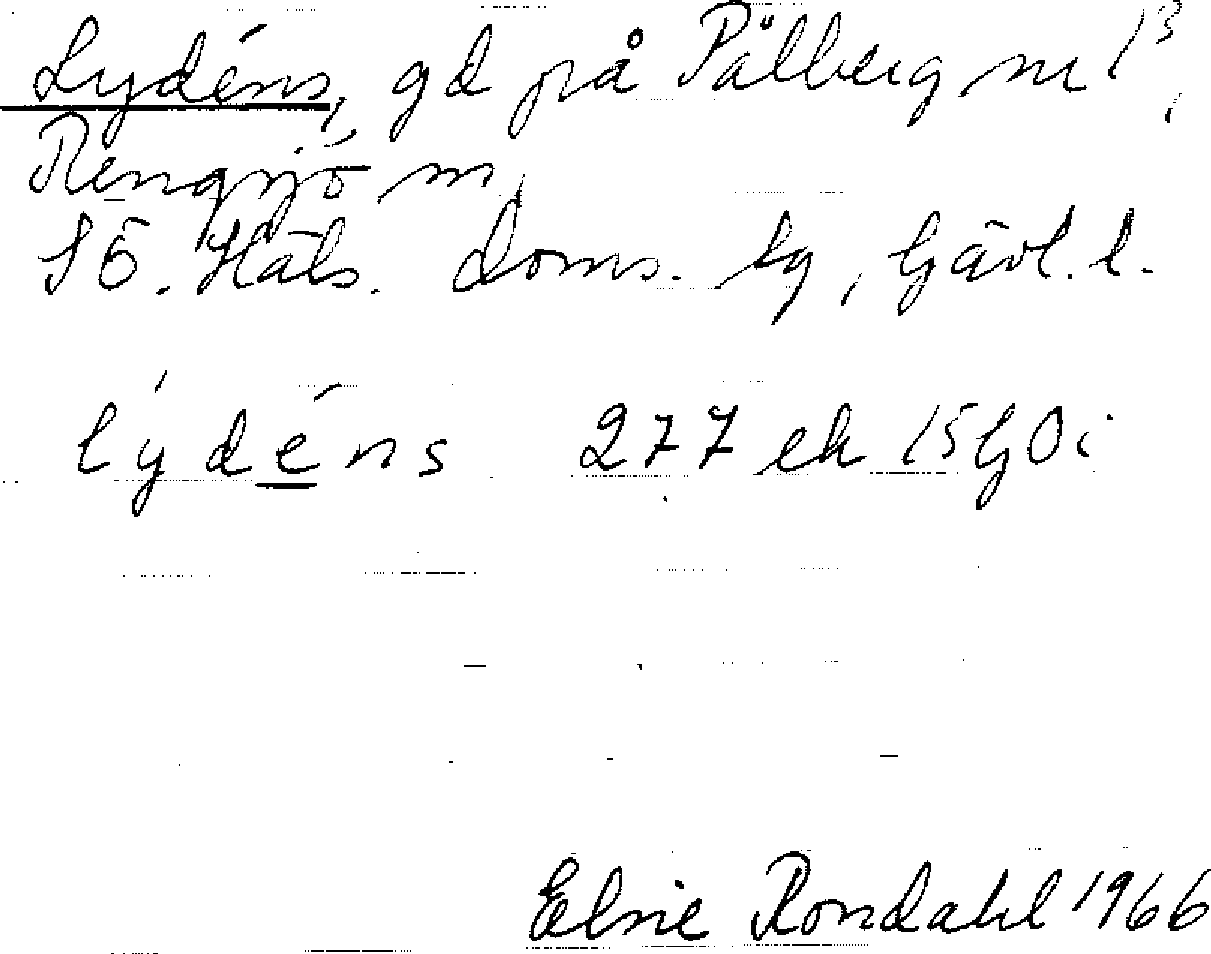 Lydéns, gd på Pålberg nr 1³,
Rengsjö sn,
SÖ. Häls. Doms. tg, Gävl. l.
lýdéns 277 ek 15G0i
Elsie Rondahl 1966